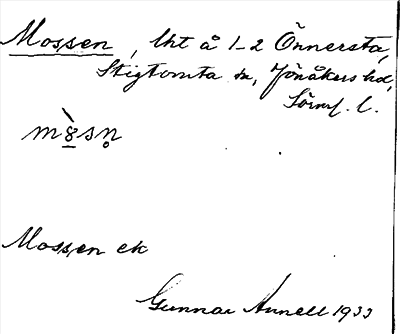 Mossen, lht å 1-2 Önnersta,
Stigtomta sn, Jönåkers hd,
Sörml. l.
mò̱sn̥
Mossen ek
Gunnar Annell 1933